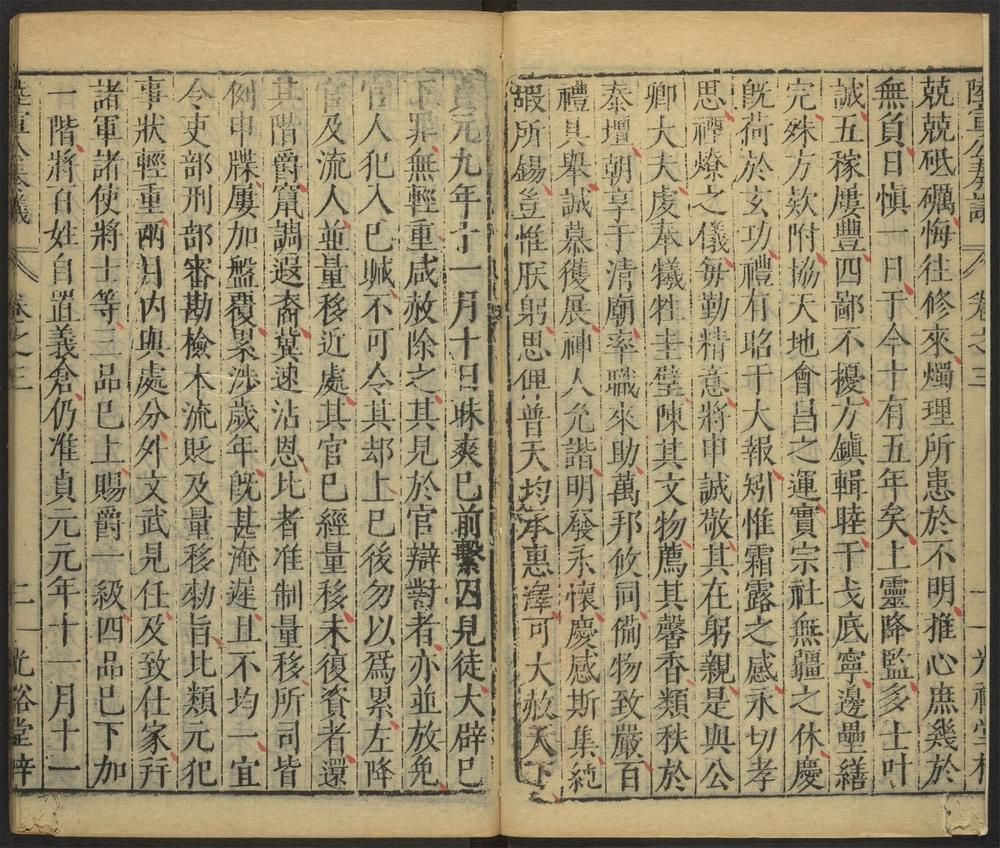 兢兢砥礪悔往修來燭理所患於不明推心庶幾於
無負日慎一日于今十有五年矣上靈降監多士叶
誠五稼屢豐四鄙不擾方鎮輯睦干戈底寧邊壘繕
完殊方欵附協天地會昌之運實宗社無疆之休慶
旣荷於玄功禮有昭于大報矧惟霜露之感永切孝
思禋燎之儀每勤精意將申誠敬其在躬親是與公
卿大夫虔奉犧牲圭璧陳其文物薦其馨香類秩於
泰壇朝享于清廟率職來助萬邦攸同備物致嚴百
禮具舉誠慕獲展神人允諧明發永懷慶感斯集純
嘏所錫豈惟朕躬思俾普天均承惠澤可大赦天下
貞元九年十一月十日昧爽已前繫囚見徒大辟已
下罪無輕重咸赦除之其見於官辯對者亦並放免
官人犯入已贓不可令其却上已後勿以爲累左降
官及流人並量移近處其官已經量移未復資者還
其階爵竄謫遐裔冀速沾恩比者准制量移所司皆
例申牒屢加盤覆累涉歲年旣甚淹遲且不均一宜
令吏部刑部審勘檢本流貶及量移勑旨比類元犯
事狀輕重兩月內與處分外文武見任及致仕家幷
諸軍諸使將士等三品已上賜爵一級四品已下加
一階將百姓自置義倉仍准貞元元年十一月十一
卷之三
二